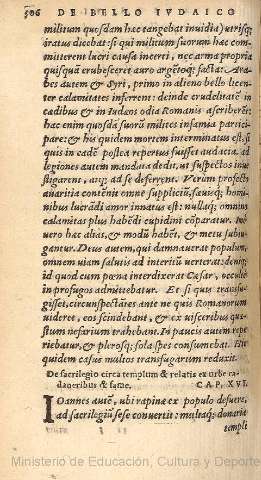 506 DE BELLO IVDAICO
militum quosdam hac tangebat inuidia) utrisq;
iratus dicebat: si qui militum suorum hac com
mitterent lucri causa incerti, nec arma propria
quisquā erubesceret auro argētoq; factā: Ara
bes autem & Syri, primo in alieno bello licen
ter calamitates inferrent: deinde crudelitatē in
cædibus & in Iudæos odia Romanis ascriberēt:
hac enim quosdā suorū milites infamia partici
pare: & his quidem mortem interminatus est, si
quis in eadē postea repertus fuisset audacia. ad
legiones autem mandata dedit, ut suspectos inue
stigarent, atq; ad se deferrent. Verum profecto
auaritia contēnit omne suppliciū, sæuusq; homi
nibus lucrādi amor innatus est: nullaq; omnino
calamitas plus habēdi cupidini cōparatur. In
uero hæc alias, & modū habēt, & metu subiu
gantur. Deus autem, qui damnauerat populum,
omnem uiam salutis ad interitū uerterat: deniq;
id quod cum pœna interdixerat Cæsar, occulte
in profugos admittebatur. Et si quis transfu-
gisset, circunspectātes ante ne quis Romanorum
uideret, eos scindebant, & ex uisceribus quæ-
stum nefarium trahebant. In paucis autem repe
riebatur, & plerosq; sola spes consumebat. Hic
quidem casus multos transfugarum reduxit.
De sacrilegio circa templum & relatis ex urbe ca-
daueribus & fame. CAP. XVI.
IOannes autē, ubi rapinæ ex populo defuere,
ad sacrilegiū sese conuertit: multaq; donaria
templi
Ministerio de Educación, Cultura y Deporte